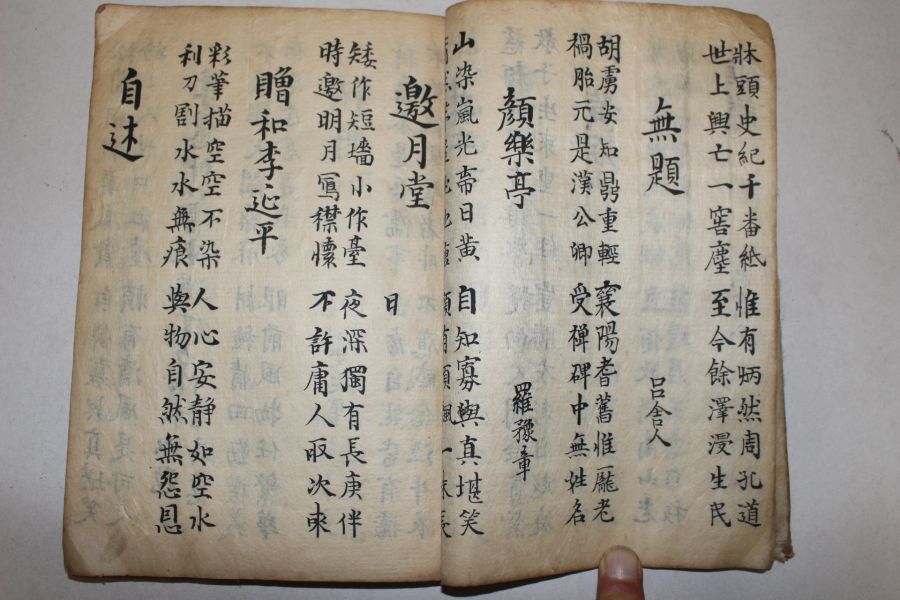 牀頭史紀千番紙 惟有炳然周孔道
世上興亡一窖塵 至今餘澤浸生民
無題 呂舍人
胡虜安知鼎重輕 襄陽耆舊惟龐老
禍胎元是漢公卿 受禪碑中無姓名
顏樂亭 羅豫章
山染嵐光帶日黃 自知寡與真堪笑
有顏瓢一味長
邀月堂 日
矮作短墻小作臺 夜深獨有長庚伴
時邀明月寫襟懷 不許庸人取次來
贈和李延平
彩筆描空空不染 人心安静如空水
利刀割水水無痕 與物自然無怨恩
自述